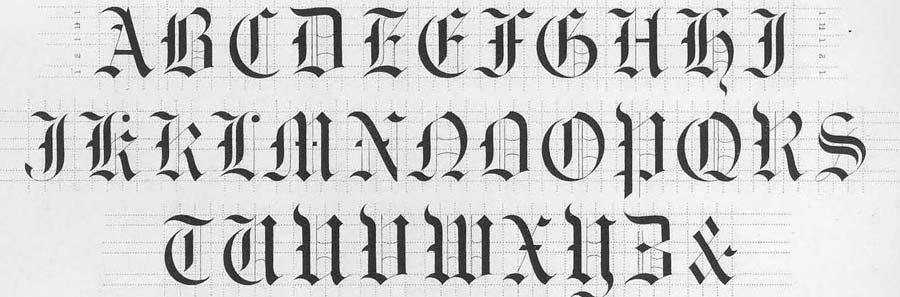 ABCDEEFGHHI
JKKLMNNOOPQRS
TUUVWXYZ&